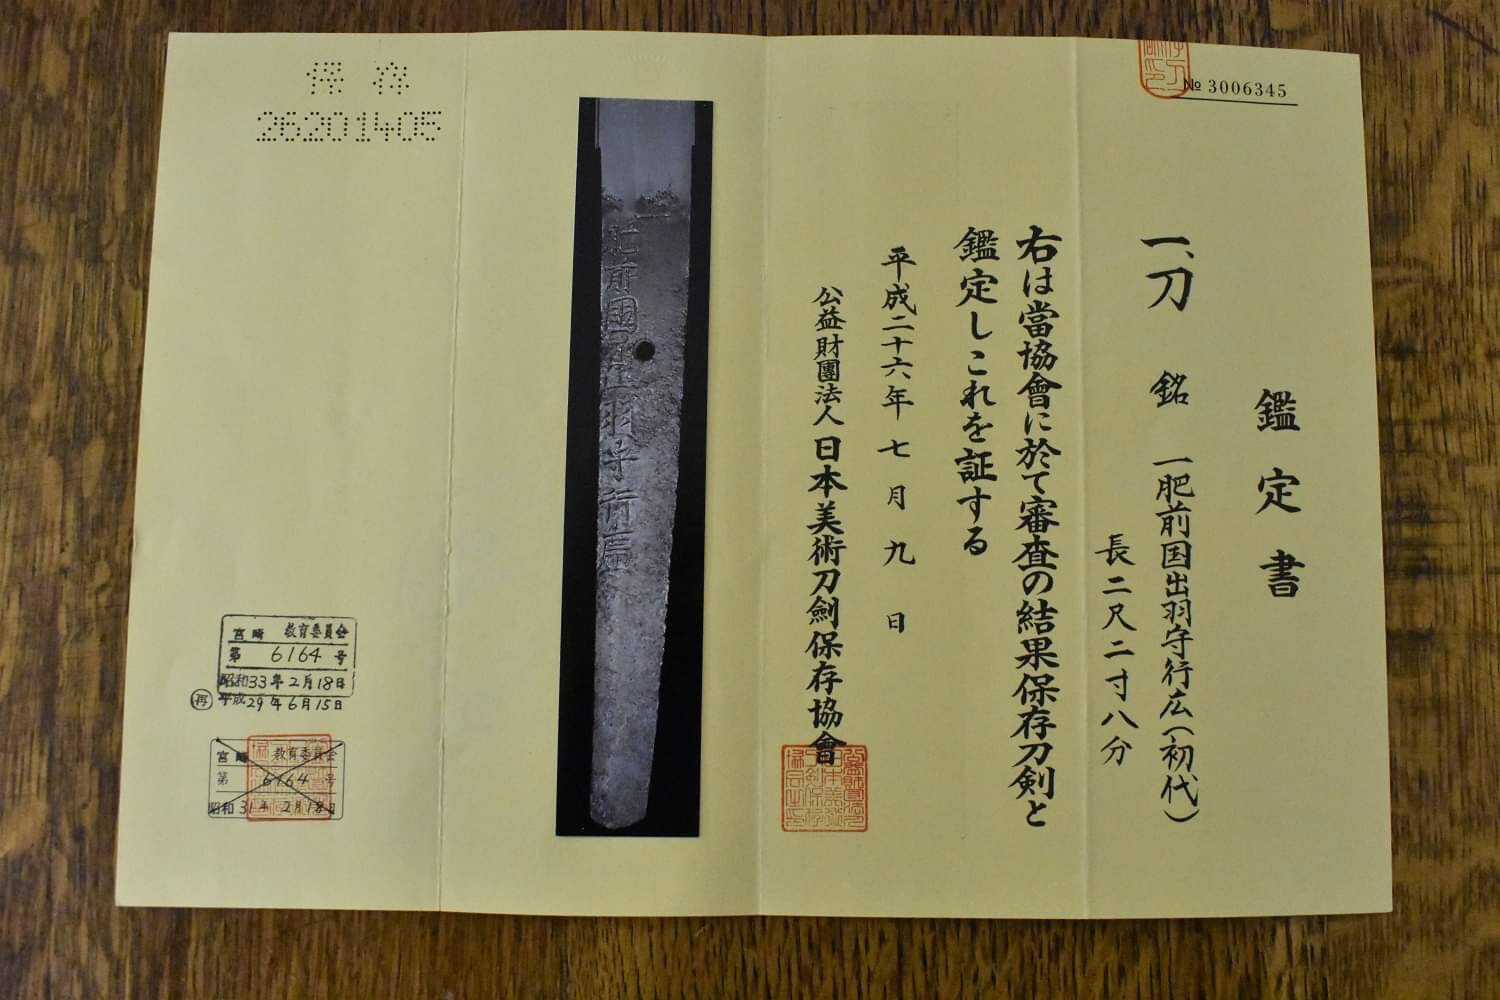 № 3006345
鑑定書
一、刀 銘 一肥前国出羽守行広(初代)
長二尺二寸八分
右は當協會に於て審査の結果保存刀剣と
鑑定しこれを証する
平成二十六年七月九日
公益財團法人日本美術刀劍保存協會
肥前國出羽守行廣
保存
26201405
宮崎 教育委員会
第 6164 号
昭和33年2月18日
再 平成29年6月15日
宮崎 教育委員会
第 6164 号
昭和31年2月18日